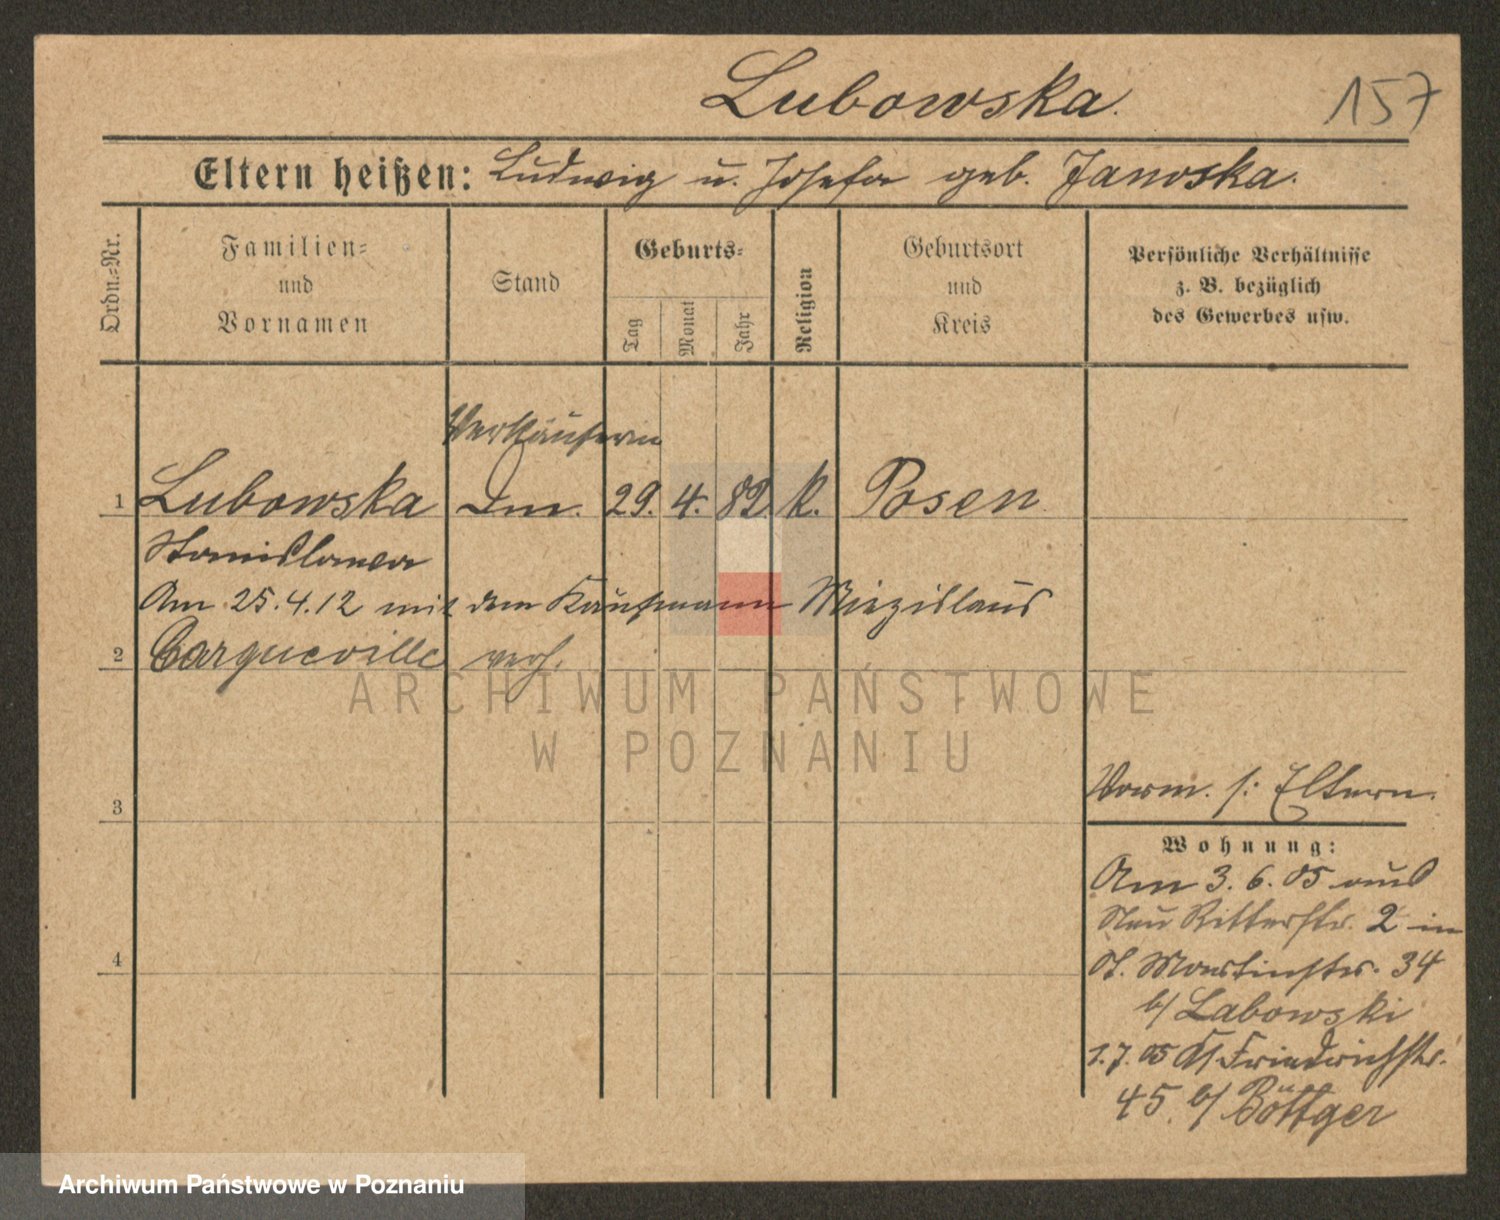 Lubowska.
157
Eltern heißen: Ludwig u. Josefa geb. Janoska.
Ordn.=Nr.
Familien=
und
Vornamen
Stand
Geburts=
Tag
Monat
Jahr
Religion
Geburtsort
und
Kreis
Persönliche Verhältnisse
z. B. bezüglich
des Gewerbes usw.
Verkäuferin
1 Lubowska 29. 4. 82 k. Posen
Stanislawa
Am 25.4.12 mit dem Kaufmann Miezislaus
2 Carqueville verh.
ARCHIWUM PAŃSTWOWE
W POZNANIU
3
Vorm. s: Eltern.
Wohnung:
Am 3. 6. 05 aus
Neu Ritterstr. 2 in
St. Martinstr. 34
b/ Labowski
4
1.7.05 Friedrichstr.
45. b/ Böttger
Archiwum Państwowe w Poznaniu